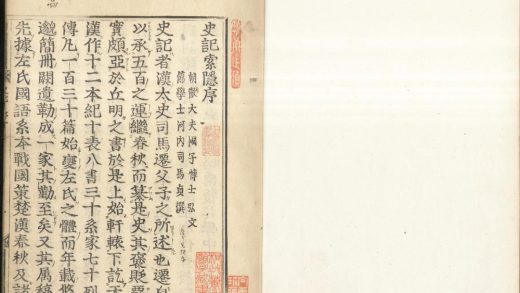 史記索隱序
朝散大夫國子博士弘文
館學士河內司馬貞撰
史記者漢太史司馬遷父子之所述也遷自
以承五百之運繼春秋而纂是史其褒貶
實頗亞於丘明之書於是上始軒轅下訖天
漢作十二本紀十表八書三十系家七十列
傳凡一百三十篇始變左氏之體而年載悠
邈簡冊闕遺勒成一家其勤至矣又其属稿
先據左氏國語系本戰國策楚漢春秋及諸